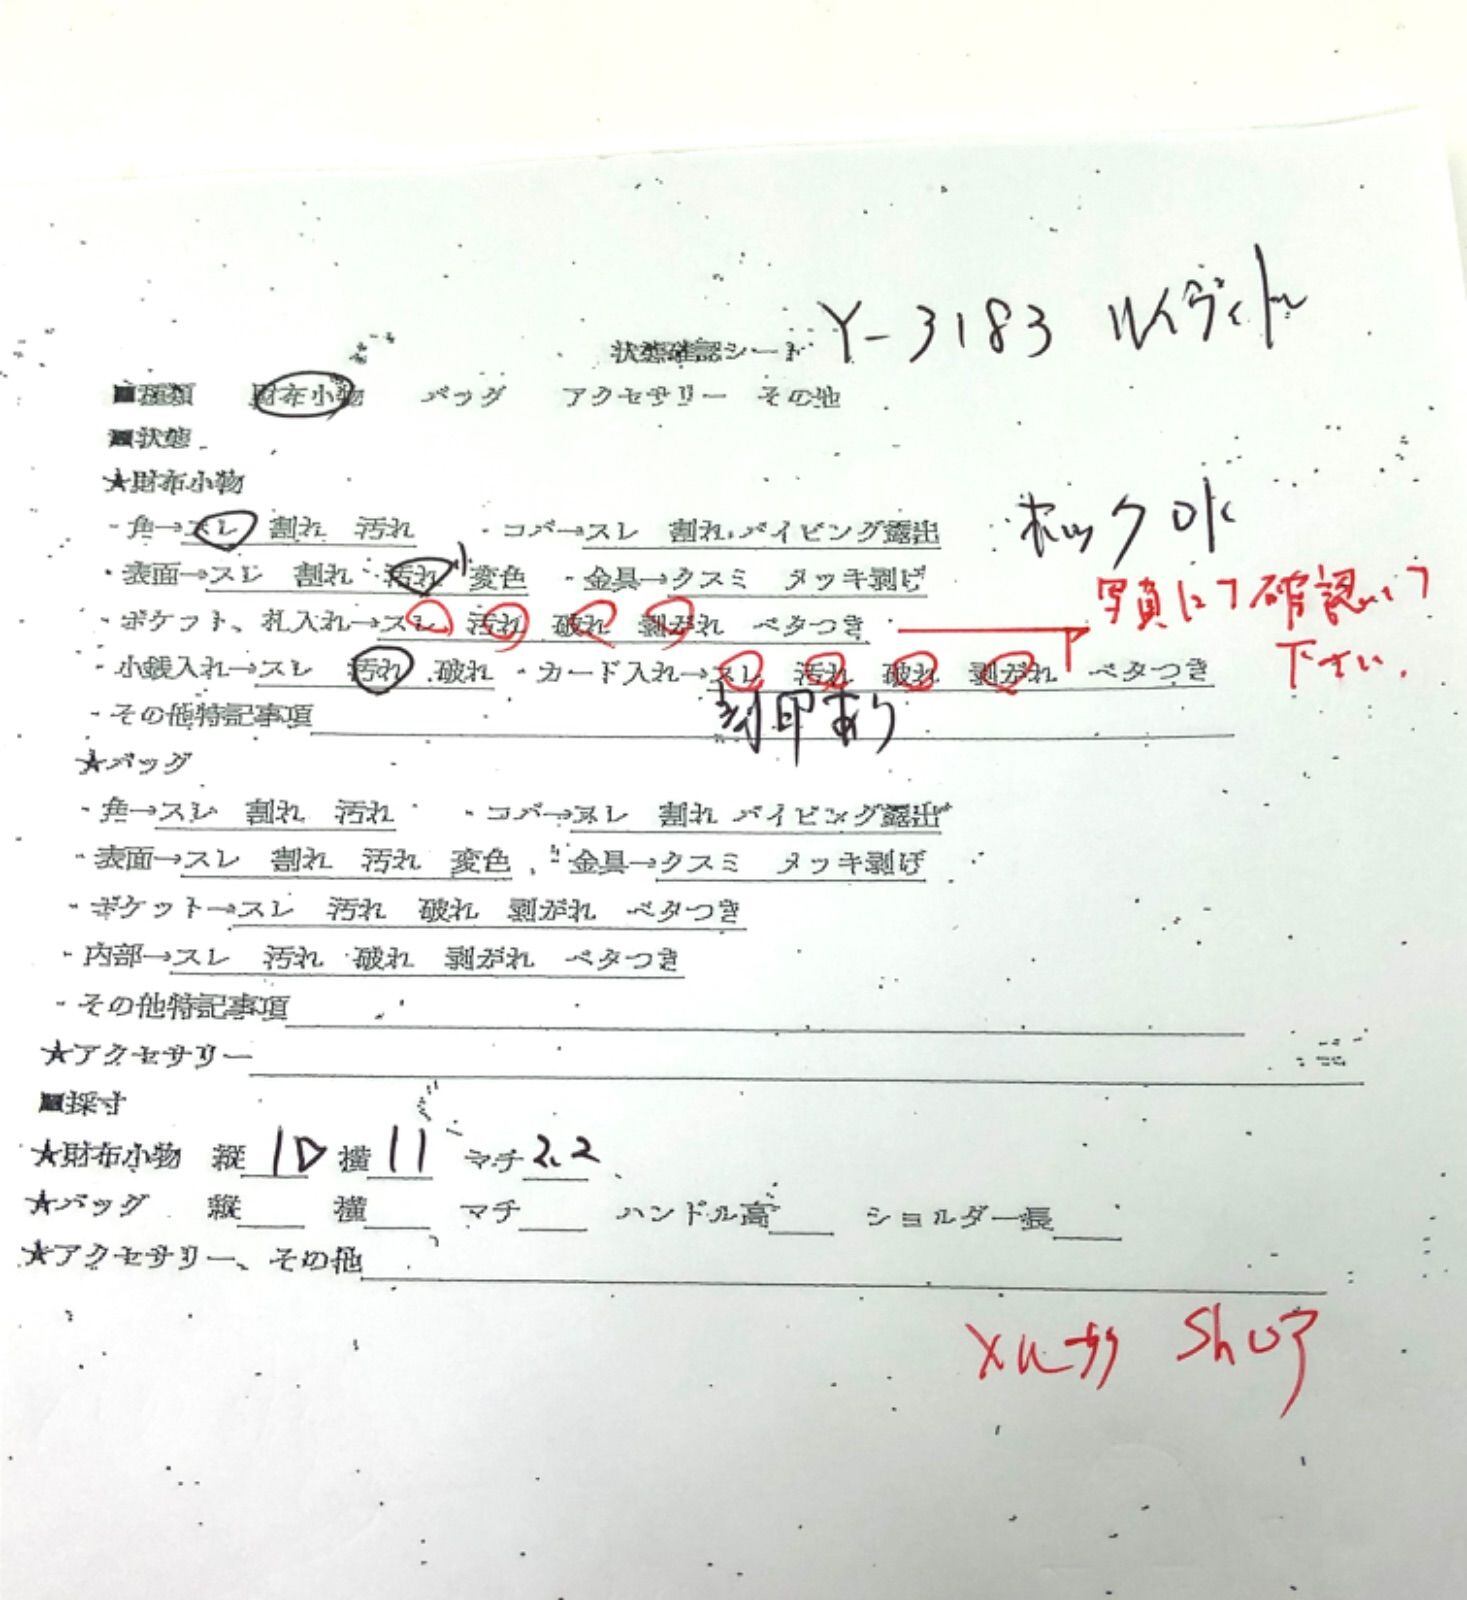 Y-3183 ルイヴィトン
状態確認シート
■種類 財布小物 バッグ アクセサリー その他
■状態
★財布小物
・角→スレ 割れ 汚れ ・コバ→スレ 割れ パイピング露出 ホックOK
・表面→スレ 割れ 汚れ 小 変色 ・金具→クスミ メッキ剥げ
写真にて確認して
下さい.
・ポケット、札入れ→スレ 汚れ 破れ 剥がれ ベタつき
・小銭入れ→スレ 汚れ 破れ ・カード入れ→スレ 汚れ 破れ 剥がれ ベタつき
・その他特記事項 刻印あり
★バッグ
・角→スレ 割れ 汚れ ・コバ→スレ 割れ パイピング露出
・表面→スレ 割れ 汚れ 変色 ・金具→クスミ メッキ剥げ
・ポケット→スレ 汚れ 破れ 剥がれ ベタつき
・内部→スレ 汚れ 破れ 剥がれ ベタつき
・その他特記事項
★アクセサリー
■採寸
★財布小物 縦 10 横 11 マチ 2.2
★バッグ 縦 横 マチ ハンドル高 ショルダー長
★アクセサリー、その他